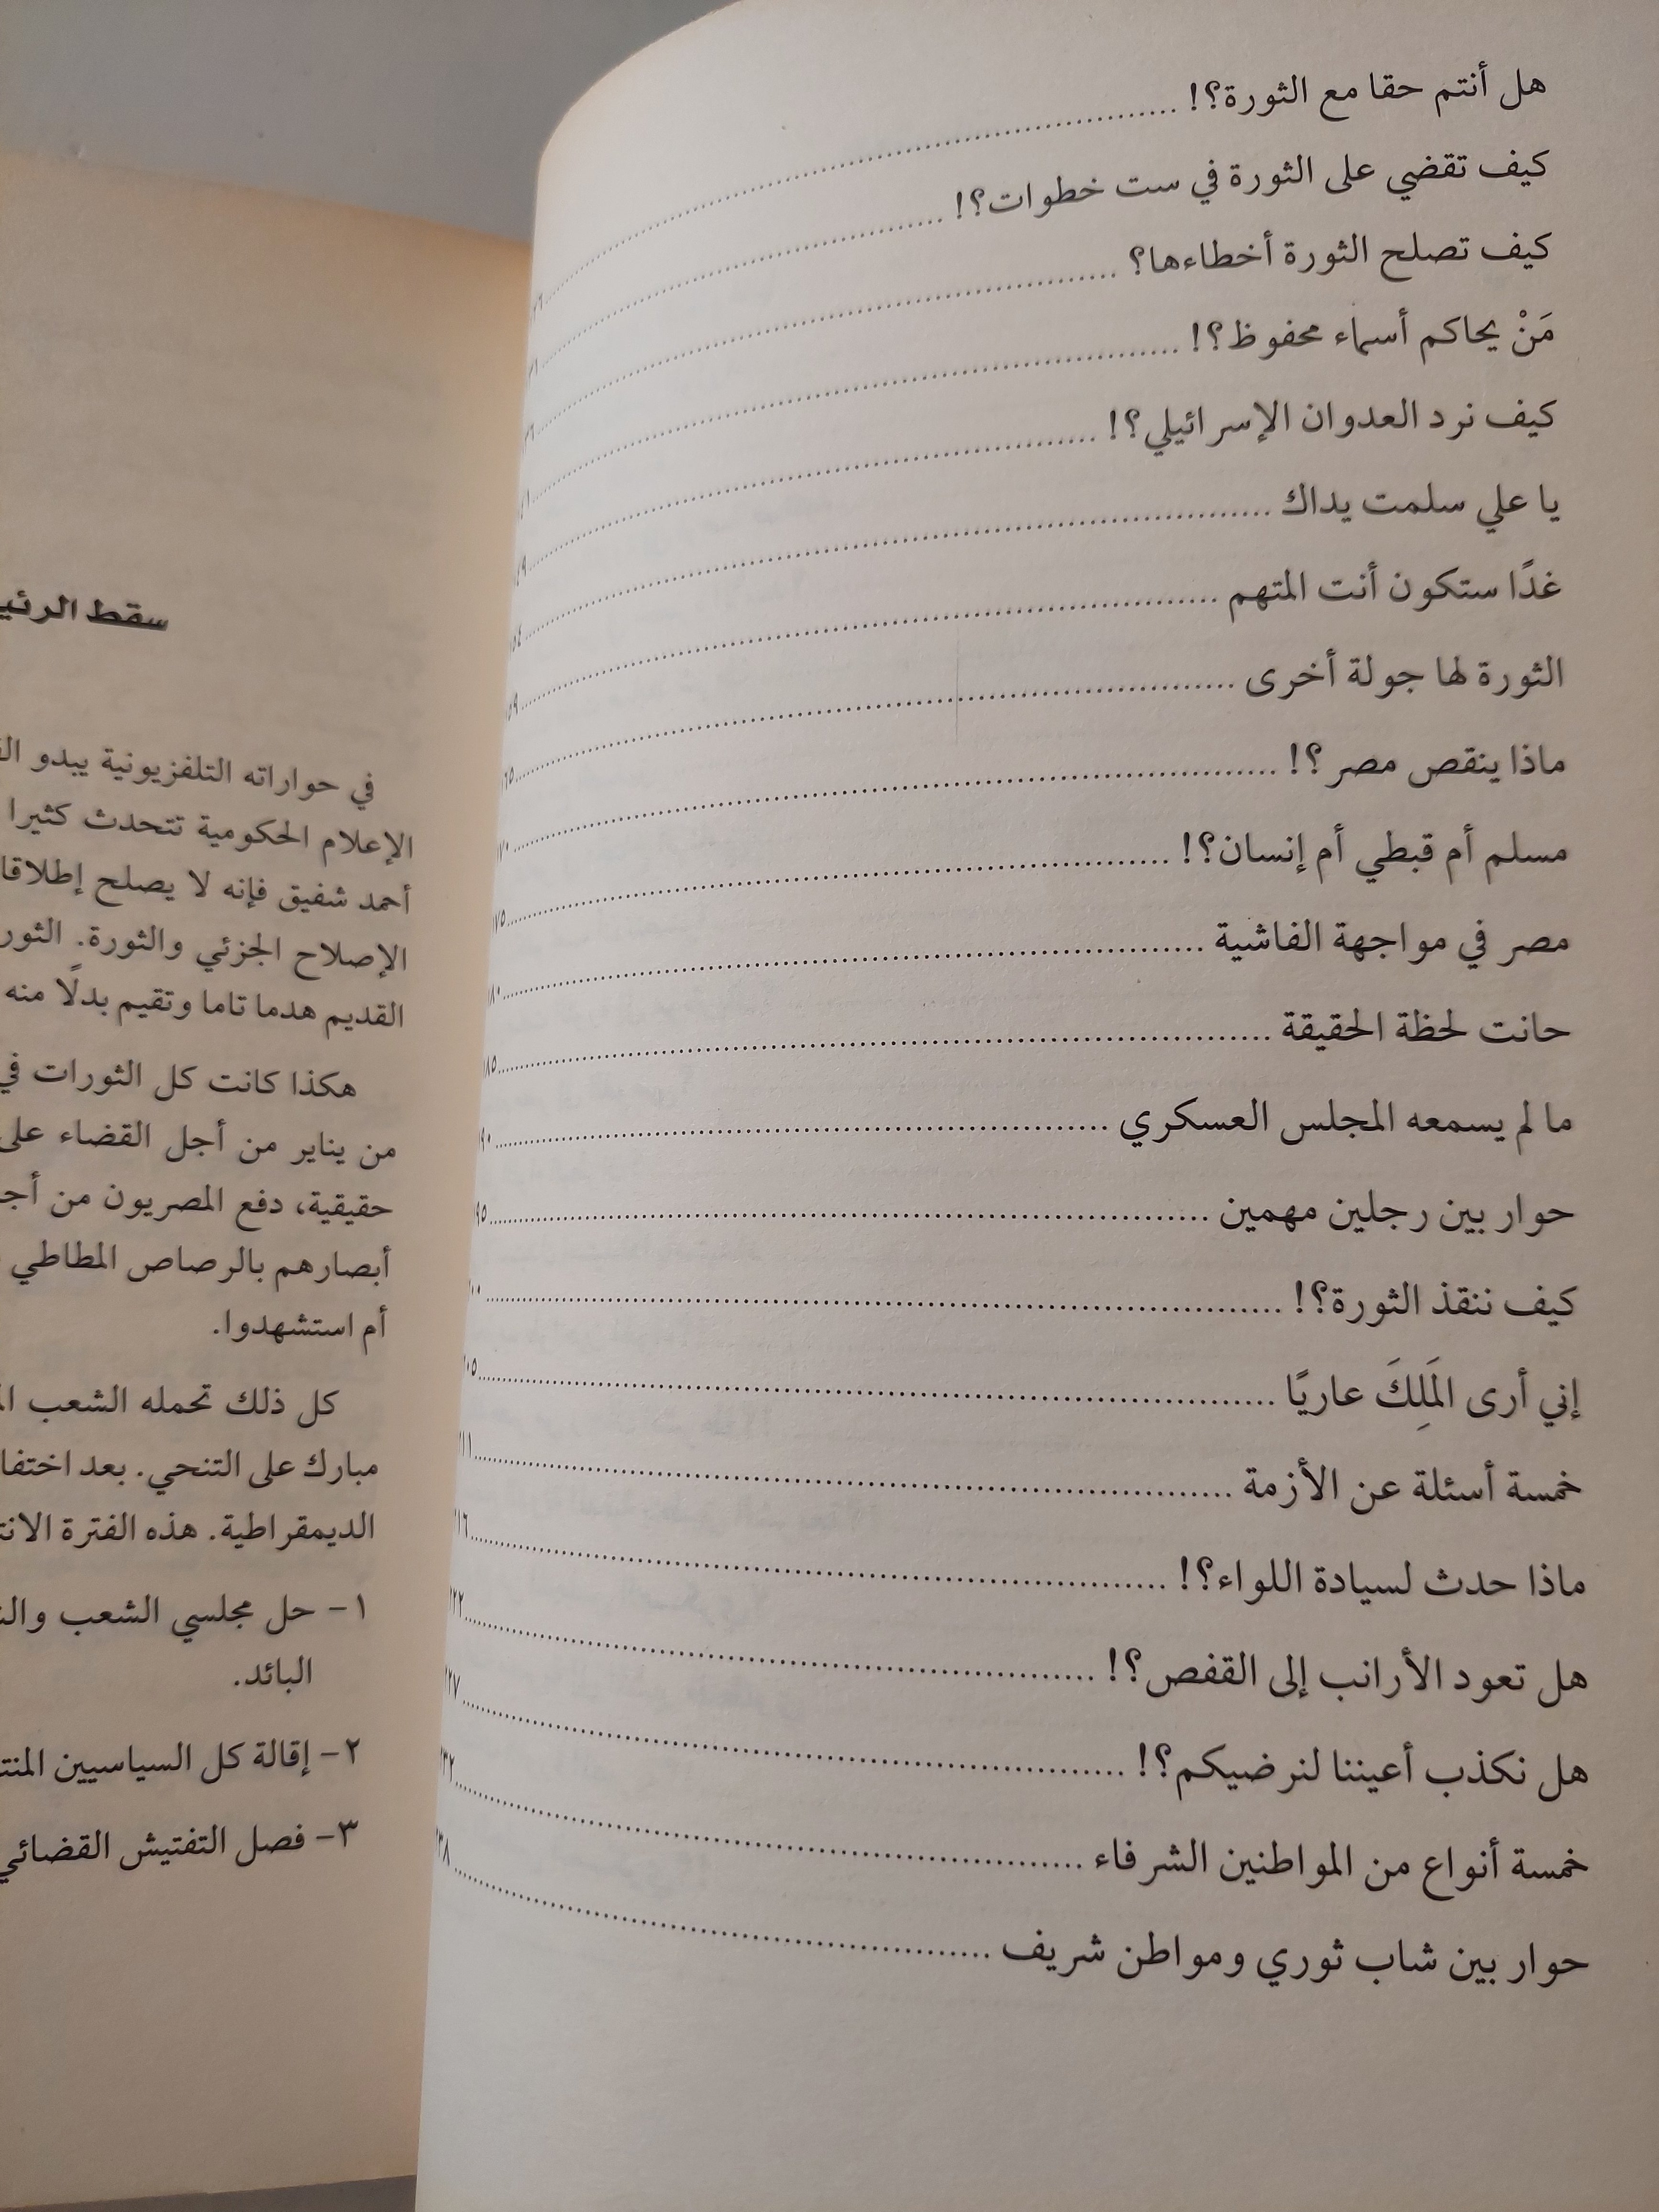 هل أنتم حقا مع الثورة؟!
كيف تقضي على الثورة في ست خطوات؟!
كيف تصلح الثورة أخطاءها؟
مَنْ يحاكم أسماء محفوظ؟!
كيف نرد العدوان الإسرائيلي؟!
يا علي سلمت يداك
غدًا ستكون أنت المتهم
الثورة لها جولة أخرى
ماذا ينقص مصر ؟!
مسلم أم قبطي أم إنسان؟! ١٧٥
مصر في مواجهة الفاشية
حانت لحظة الحقيقة
ما لم يسمعه المجلس العسكري
حوار بين رجلين مهمين
كيف ننقذ الثورة؟!
إني أرى المَلِكَ عاريًا
خمسة أسئلة عن الأزمة
ماذا حدث لسيادة اللواء؟!
هل تعود الأرانب إلى القفص؟!
هل نكذب أعيننا لنرضيكم؟!
خمسة أنواع من المواطنين الشرفاء
حوار بين شاب ثوري ومواطن شريف
سقط
في حواراته التلفزيونية يبدو
الإعلام الحكومية تتحدث كثيرا
أحمد شفيق فإنه لا يصلح إطلاقا
الإصلاح الجزئي والثورة.
القديم هدما تاما وتقيم بدلًا منه
هكذا كانت كل الثورات في
من يناير من أجل القضاء على
حقيقية، دفع المصريون من
أبصارهم بالرصاص المطاطي
أم استشهدوا.
كل ذلك تحمله الشعب
مبارك على التنحي. بعد
الديمقراطية. هذه الفترة
١- حل مجلسي الشعب
البائد.
٢- إقالة كل السياسيين
٣- فصل التفتيش القضائي